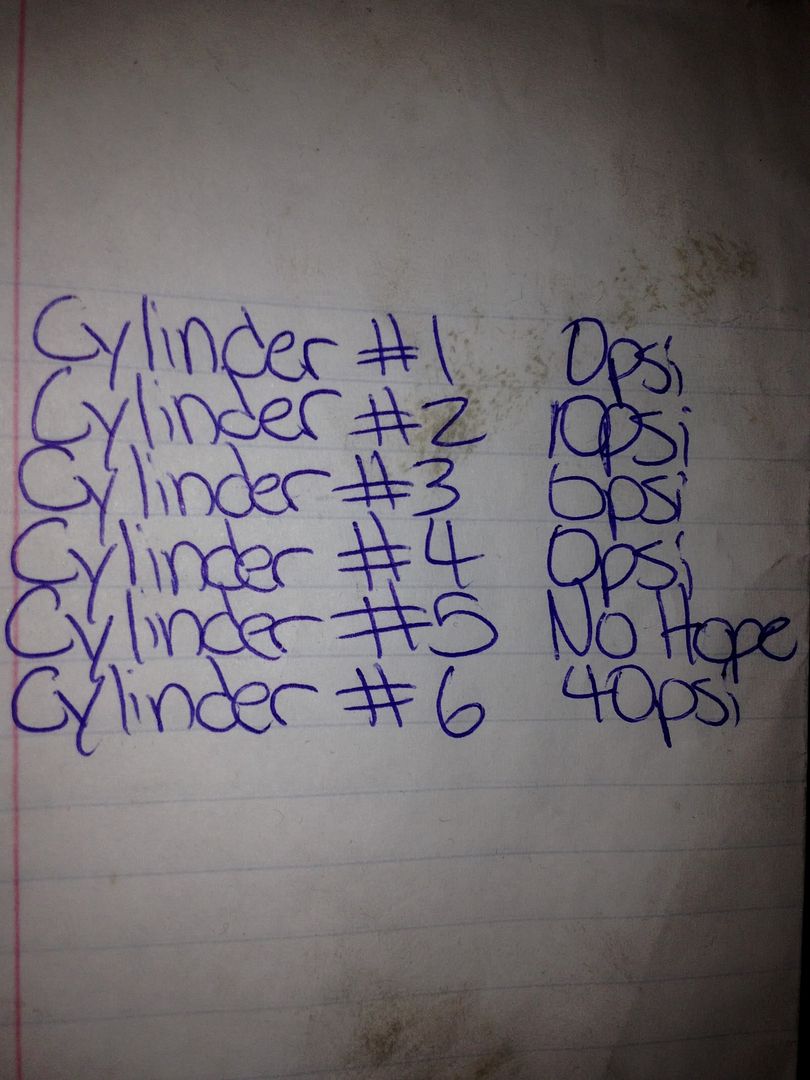 Cylinder #1 0psi
Cylinder #2 10psi
Cylinder #3 0psi
Cylinder #4 0psi
Cylinder #5 No Hope
Cylinder #6 40psi